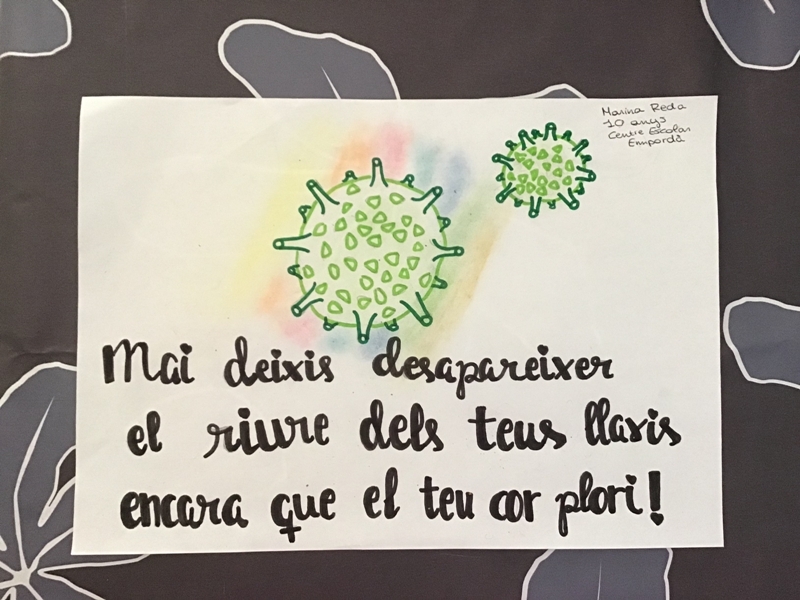 Marina Reda
10 anys
Centre Escolar
Empordà
Mai deixis desapareixer
el riure dels teus llavis
encara que el teu cor plori!